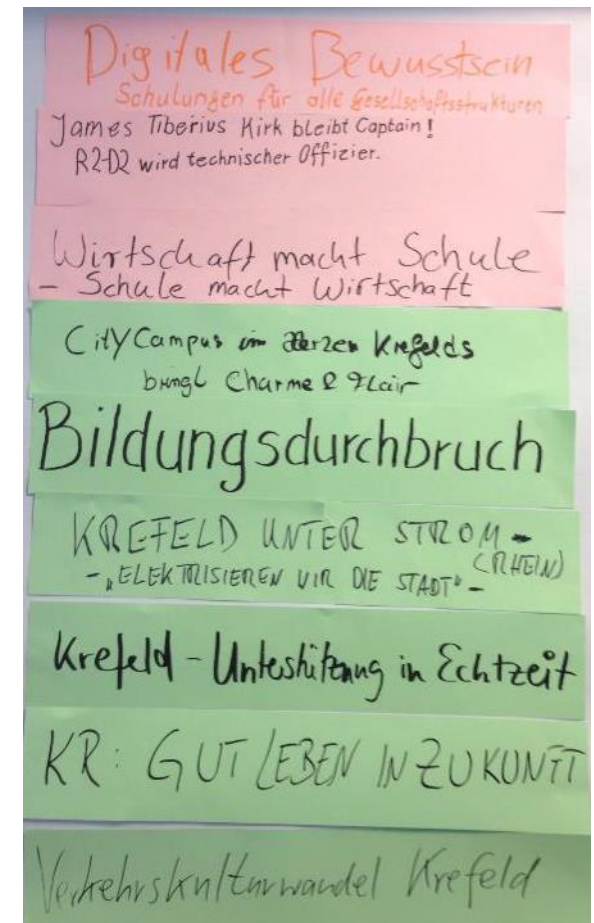 Digitales Bewusstsein
Schulungen für alle Gesellschaftsstrukturen
James Tiberius Kirk bleibt Captain!
R2-D2 wird technischer Offizier.
Wirtschaft macht Schule
- Schule macht Wirtschaft
City Campus im Herzen Krefelds
bringt Charme & Flair
Bildungsdurchbruch
KREFELD UNTER STROM -
(RHEIN)
- "ELEKTRISIEREN WIR DIE STADT" -
Krefeld - Unterstützung in Echtzeit
KR: GUT LEBEN IN ZUKUNFT
Verkehrskulturwandel Krefeld